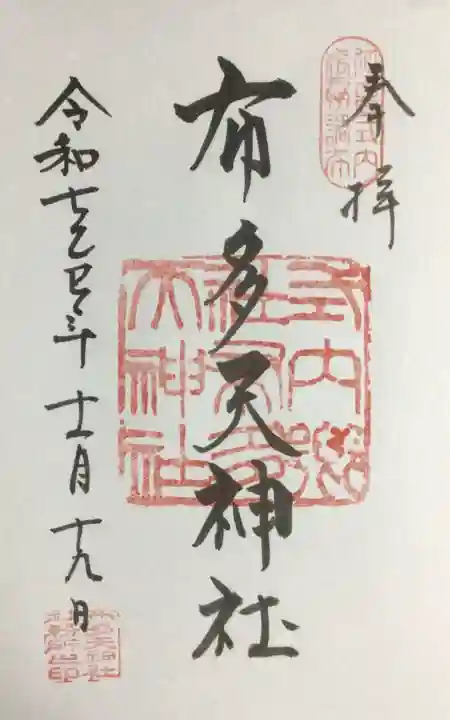 奉拝
式内郷
社布多
天神社
布多天神社
令和七乙巳年十一月十九日